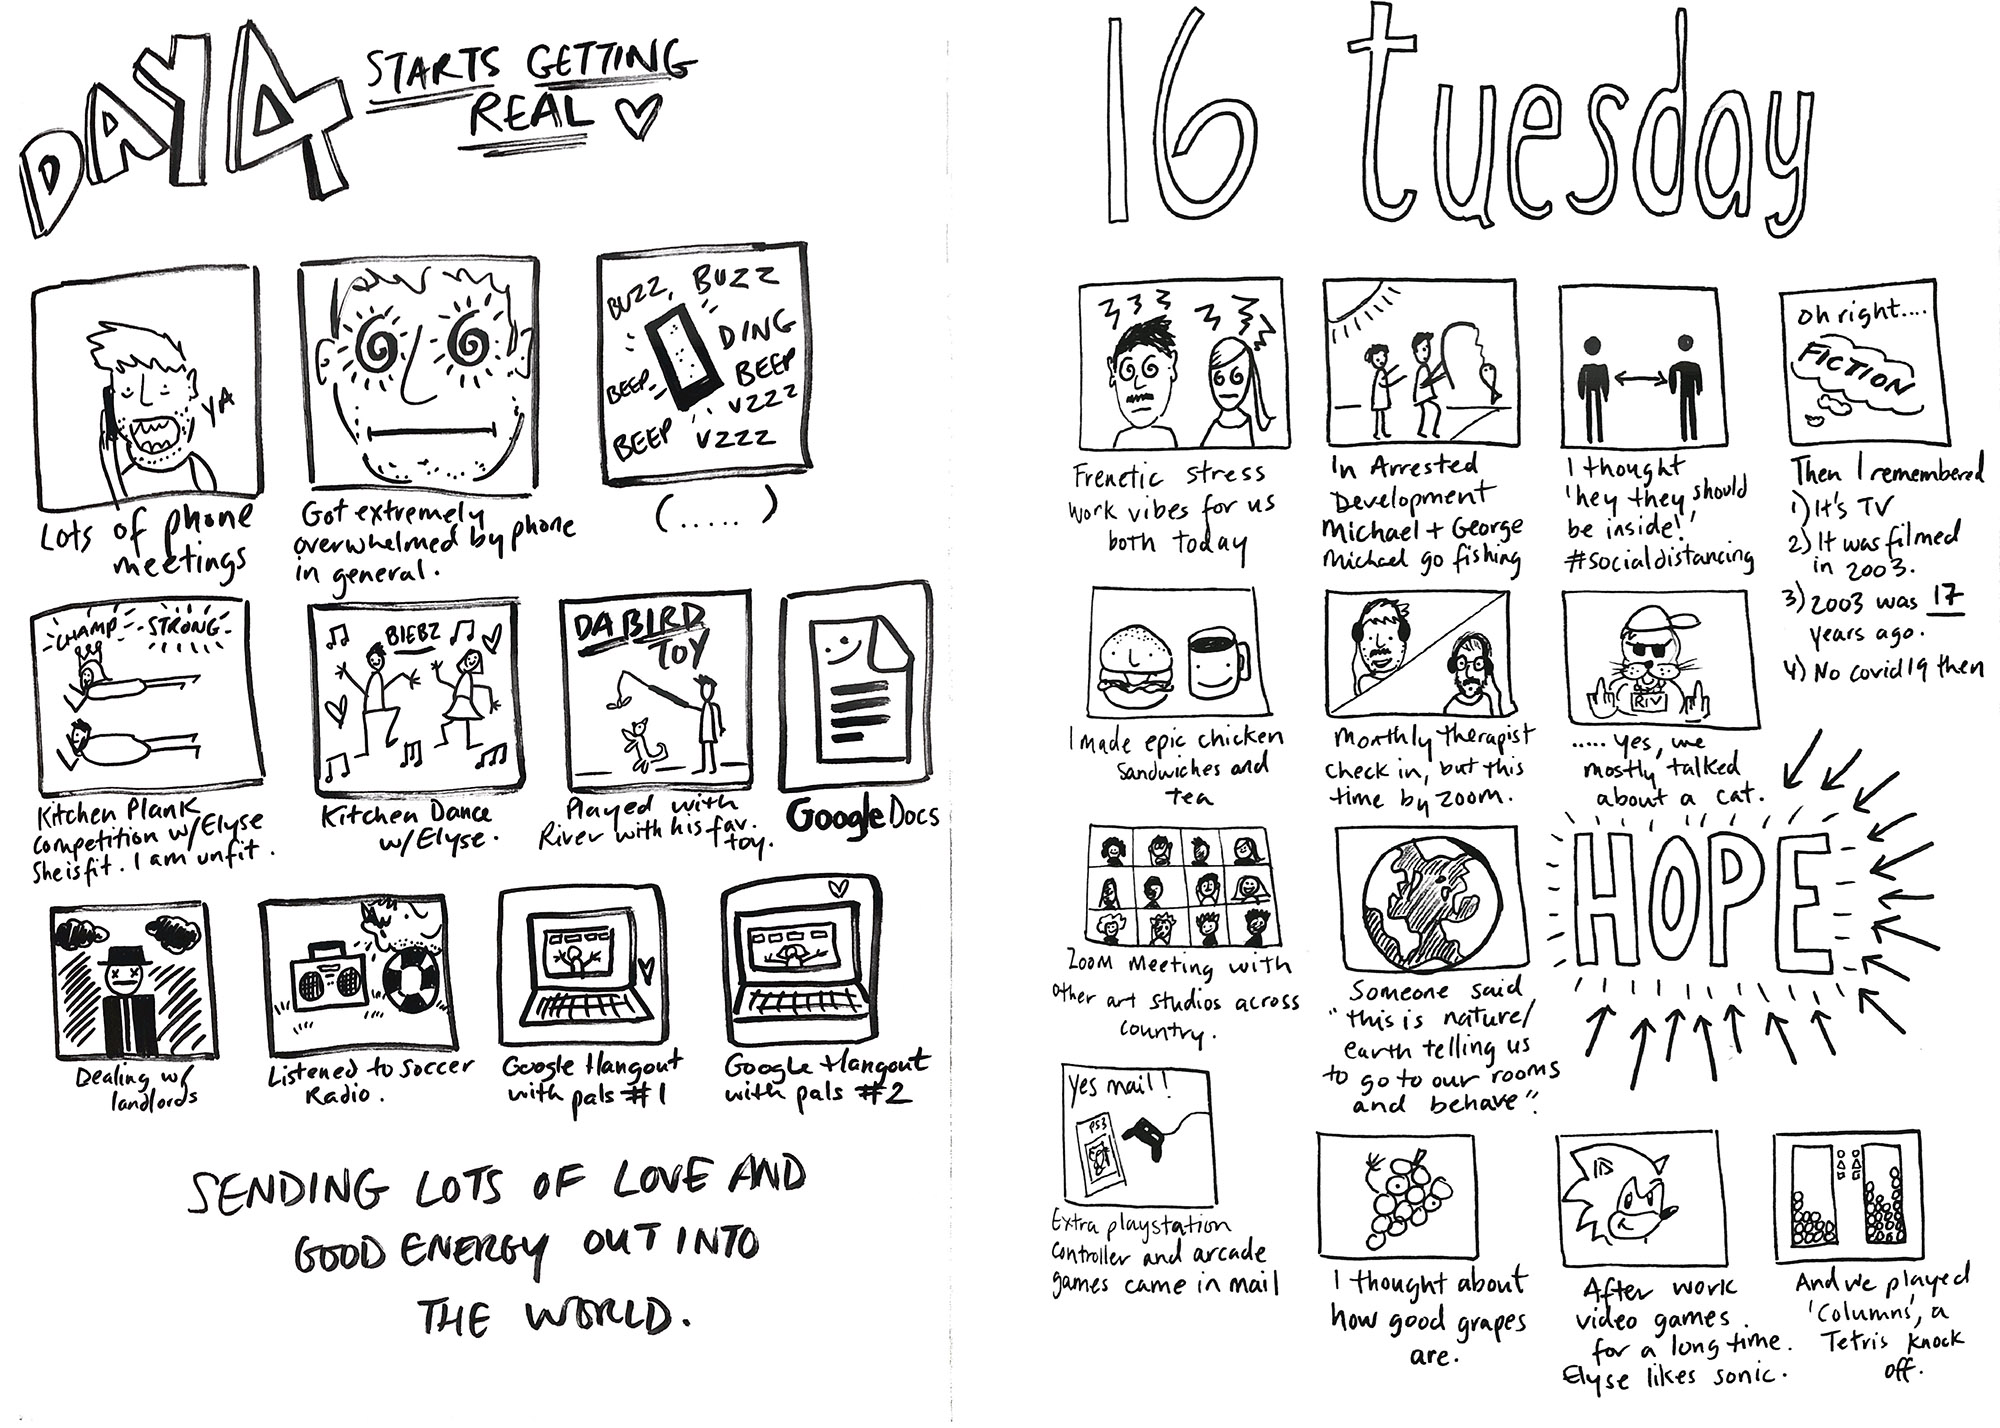 DAY 4
STARTS GETTING
REAL
YA
Lots of phone
meetings
Got extremely
overwhelmed by phone
in general.
BUZZ, BUZZ
DING
BEEP
BEEP
VZZZ
BEEP
VZZZ
(.....)
CHAMP
STRONG
Kitchen Plank
Competition w/Elyse
She is fit. I am unfit.
BIEBZ
Kitchen Dance
w/Elyse.
DA BIRD
TOY
Played with
River with his fav.
toy.
Google Docs
Dealing w/
landlords
Listened to Soccer
Radio.
Google Hangout
with pals #1
Google Hangout
with pals #2
SENDING LOTS OF LOVE AND
GOOD ENERGY OUT INTO
THE WORLD.
16 tuesday
Frenetic stress
work vibes for us
both today
In Arrested
Development
Michael + George
Michael go fishing
I thought
'hey they should
be inside!'
#socialdistancing
Oh right....
FICTION
Then I remembered
1) It's TV
2) It was filmed
in 2003.
3) 2003 was 17
years ago.
4) No covid19 then
I made epic chicken
Sandwiches and
tea
Monthly therapist
check in, but this
time by zoom.
RIV
..... yes, we
mostly talked
about a cat.
Zoom Meeting with
other art studios across
country.
Someone said
"this is nature/
earth telling us
to go to our rooms
and behave".
HOPE
Yes mail!
PS3
Extra playstation
controller and arcade
games came in mail
I thought about
how good grapes
are.
After work
video games
for a long time.
Elyse likes sonic.
And we played
'Columns', a
Tetris knock
off.